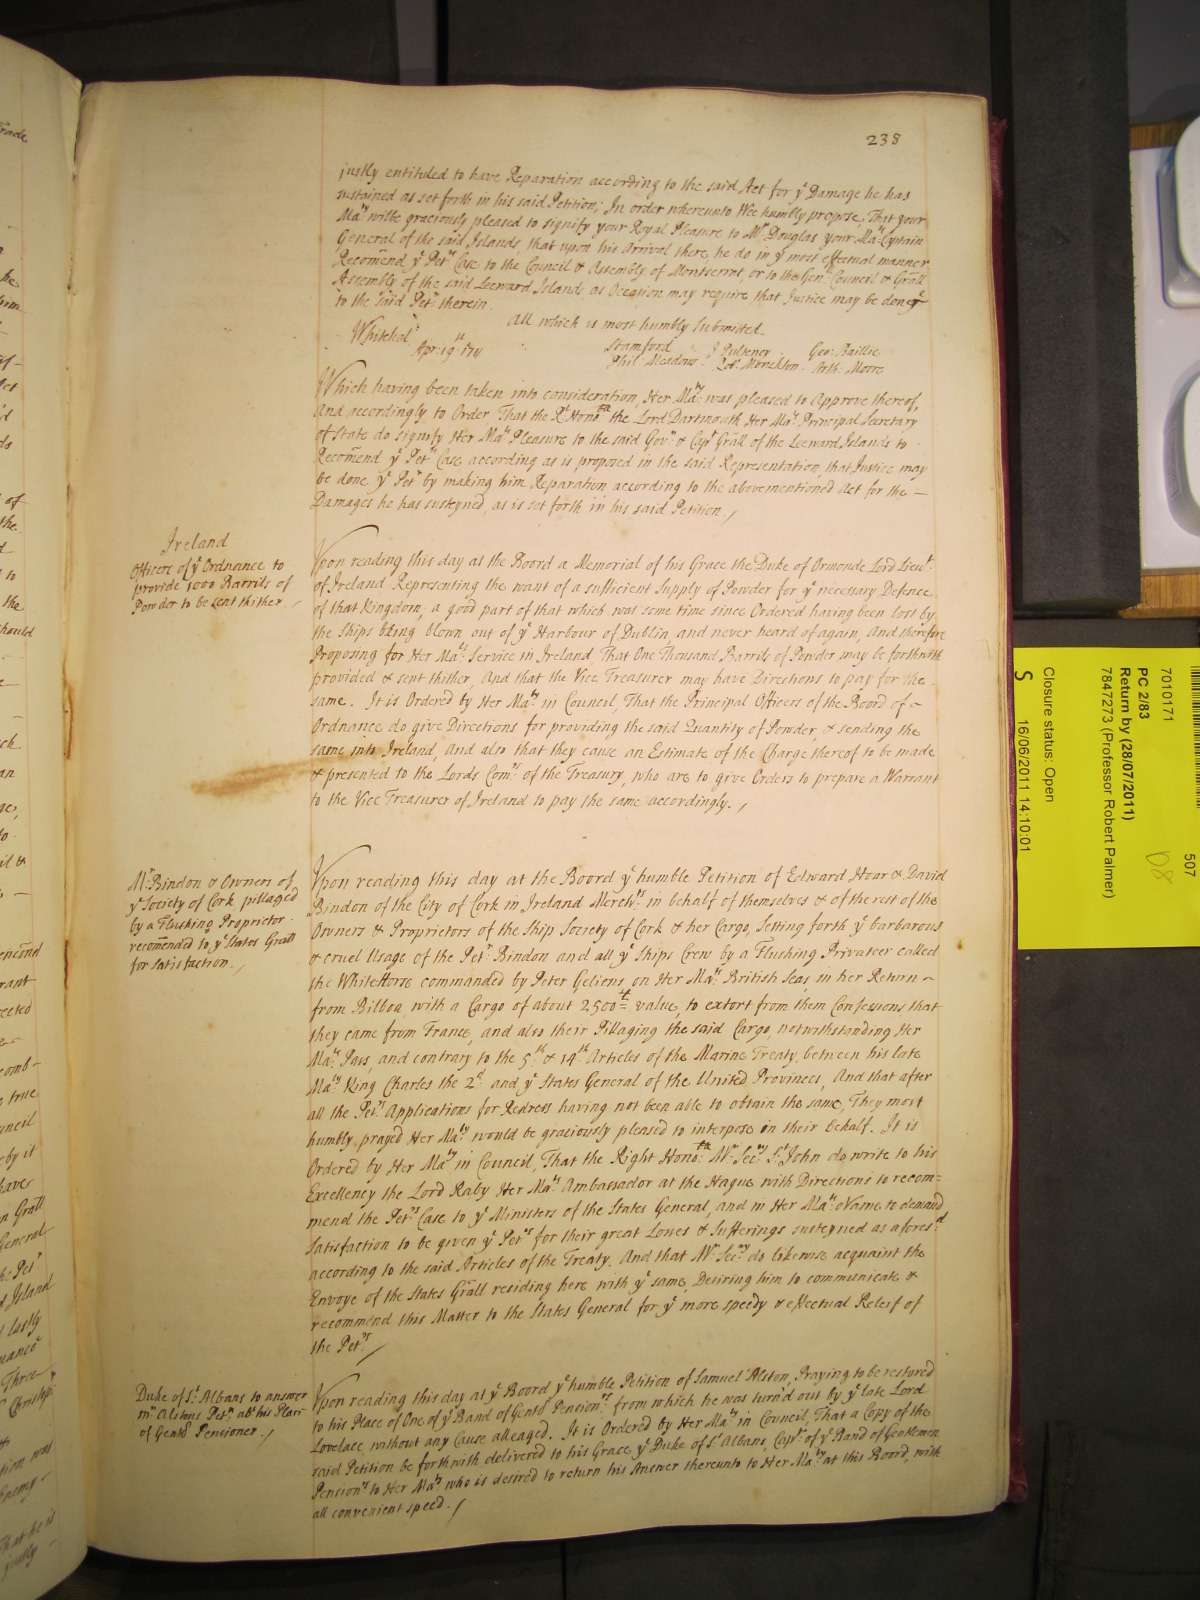 238
justly entituled to have Reparation according to the said Act for yᵉ Damage he has
sustained as set forth in his said Petition; In order whereunto Wee humbly propose, That your
Maᵗʸ wilbe graciously pleased to signify your Royal Pleasure to Mʳ Douglas your Maᵗˢ Captain
General of the said Islands, that upon his Arrival there, he do in yᵉ most effectual manner
Recomend yᵉ Petʳˢ Case to the Council & Assembly of Montserrat, or to the Genˡ Council & Grāll
Assembly of the said Leeward Islands as Occasion may require that Justice may be done yᵉ
to the said Petʳ therein.
All which is most humbly Submitted.
Whitehal
Apr: 19ᵗʰ 1711
Stamford J Pulteney Geo: Baillie
Phil: Meadows Robᵗ Monckton Arth: Moore
Which having been taken into consideration, Her Maᵗʸ was pleased to Approve thereof,
And accordingly to Order That the Rᵗ Honoᵇˡᵉ the Lord Dartmouth Her Maᵗˢ Principal Secretary
of State do signify Her Maᵗˢ Pleasure to the said Govʳ & Capᵗ Grāll of the Leeward Islands to
Recomend yᵉ Petʳˢ Case according as is proposed in the said Representation, that Justice may
be done yᵉ Petʳ by making him Reparation according to the abovementioned Act for the —
Damages he has susteyned, as is set forth in his said Petition. /
Ireland
Officers of yᵉ Ordnance to
provide 1000 Barrils of
Powder to be sent thither. /
Upon reading this day at the Board a Memorial of his Grace the Duke of Ormonde Lord Lieuᵗ
of Ireland Representing the want of a sufficient Supply of Powder for yᵉ necessary Defence
of that Kingdom; a good part of that which was some time since Ordered having been lost by
the Ships being blown out of yᵉ Harbour of Dublin, and never heard of again, And therefore
Proposing for Her Maᵗˢ Service in Ireland, That One Thousand Barrils of Powder may be forthwith
provided & sent thither, And that the Vice Treasurer may have Directions to pay for the
same. It is Ordered by Her Maᵗʸ in Council, That the Principal Officers of the Board of –
Ordnance do give Directions for providing the said Quantity of Powder, & sending the
same into Ireland, And also that they cause an Estimate of the Charge thereof to be made
& presented to the Lords Comʳˢ of the Treasury, who are to give Orders to prepare a Warrant
to the Vice Treasurer of Ireland to pay the same accordingly. /
Mʳ Bindon & Owners of
yᵉ Society of Cork pillaged
by a Flushing Proprietor
recomended to yᵉ States Grāll
for satisfaction. /
Upon reading this day at the Board yᵉ humble Petition of Edward Hoar & David
Bindon of the City of Cork in Ireland Merchᵗˢ in behalf of themselves & of the rest of the
Owners & Proprietors of the Ship Society of Cork & her Cargo, Setting forth yᵉ barbarous
& cruel Usage of the Petʳ Bindon and all yᵉ Ships Crew by a Flushing Privateer called
the White Horse commanded by Peter Geliens, on Her Maᵗˢ British Seas, in her Return –
from Bilboa, with a Cargo of about 2500ˡⁱ value, to extort from them Confessions that
they came from France, and also their Pillaging the said Cargo, notwithstanding Her
Maᵗˢ Pass, and contrary to the 5ᵗʰ & 14ᵗʰ Articles of the Marine Treaty, between his late
Maᵗʸ King Charles the 2ᵈ and yᵉ States General of the United Provinces, And that after
all the Petʳˢ Applications for Redress having not been able to obtain the same, They most
humbly prayed Her Maᵗʸ would be graciously pleased to interpose on their behalf. It is
Ordered by Her Maᵗʸ in Council, That the Right Honoᵇˡᵉ Mʳ Secʳʸ Sᵗ John do write to his
Excellency the Lord Raby Her Maᵗˢ Ambassador at the Hague with Directions to recom=
mend the Petʳˢ Case to yᵉ Ministers of the States General, and in Her Maᵗˢ Name to demand
Satisfaction to be given yᵉ Petʳˢ for their great Losses & Sufferings susteyned as aforesᵈ
according to the said Articles of the Treaty. And that Mʳ Secʳʸ do likewise acquaint the
Envoye of the States Grāll residing here with yᵉ same, Desiring him to communicate &
recommend this Matter to the States General for yᵉ more speedy & effectual Releif of
the Petʳˢ /
Duke of Sᵗ Albans to answer
mʳ Alstons Petⁿ abᵗ his Place
of Gentⁿ Pensioner. /
Upon reading this day at yᵉ Board yᵉ humble Petition of Samuel Alston, Praying to be restored
to his Place of One of yᵉ Band of Gentⁿ Pensionʳˢ from which he was turn'd out by yᵉ late Lord
Lovelace without any Cause alleaged. It is Ordered by Her Maᵗʸ in Council, That a Copy of the
said Petition be forthwith delivered to his Grace yᵉ Duke of Sᵗ Albans, Capᵗ of yᵉ Band of Gentlemen
Pensionʳˢ to Her Maᵗʸ who is desired to return his Answer thereunto to Her Maᵗʸ at this Board, with
all convenient speed. /
507
7010171
PC 2/83
Return by (28/07/2011)
7847273 (Professor Robert Palmer)
D8
Closure status: Open
S
16/06/2011 14:10:01